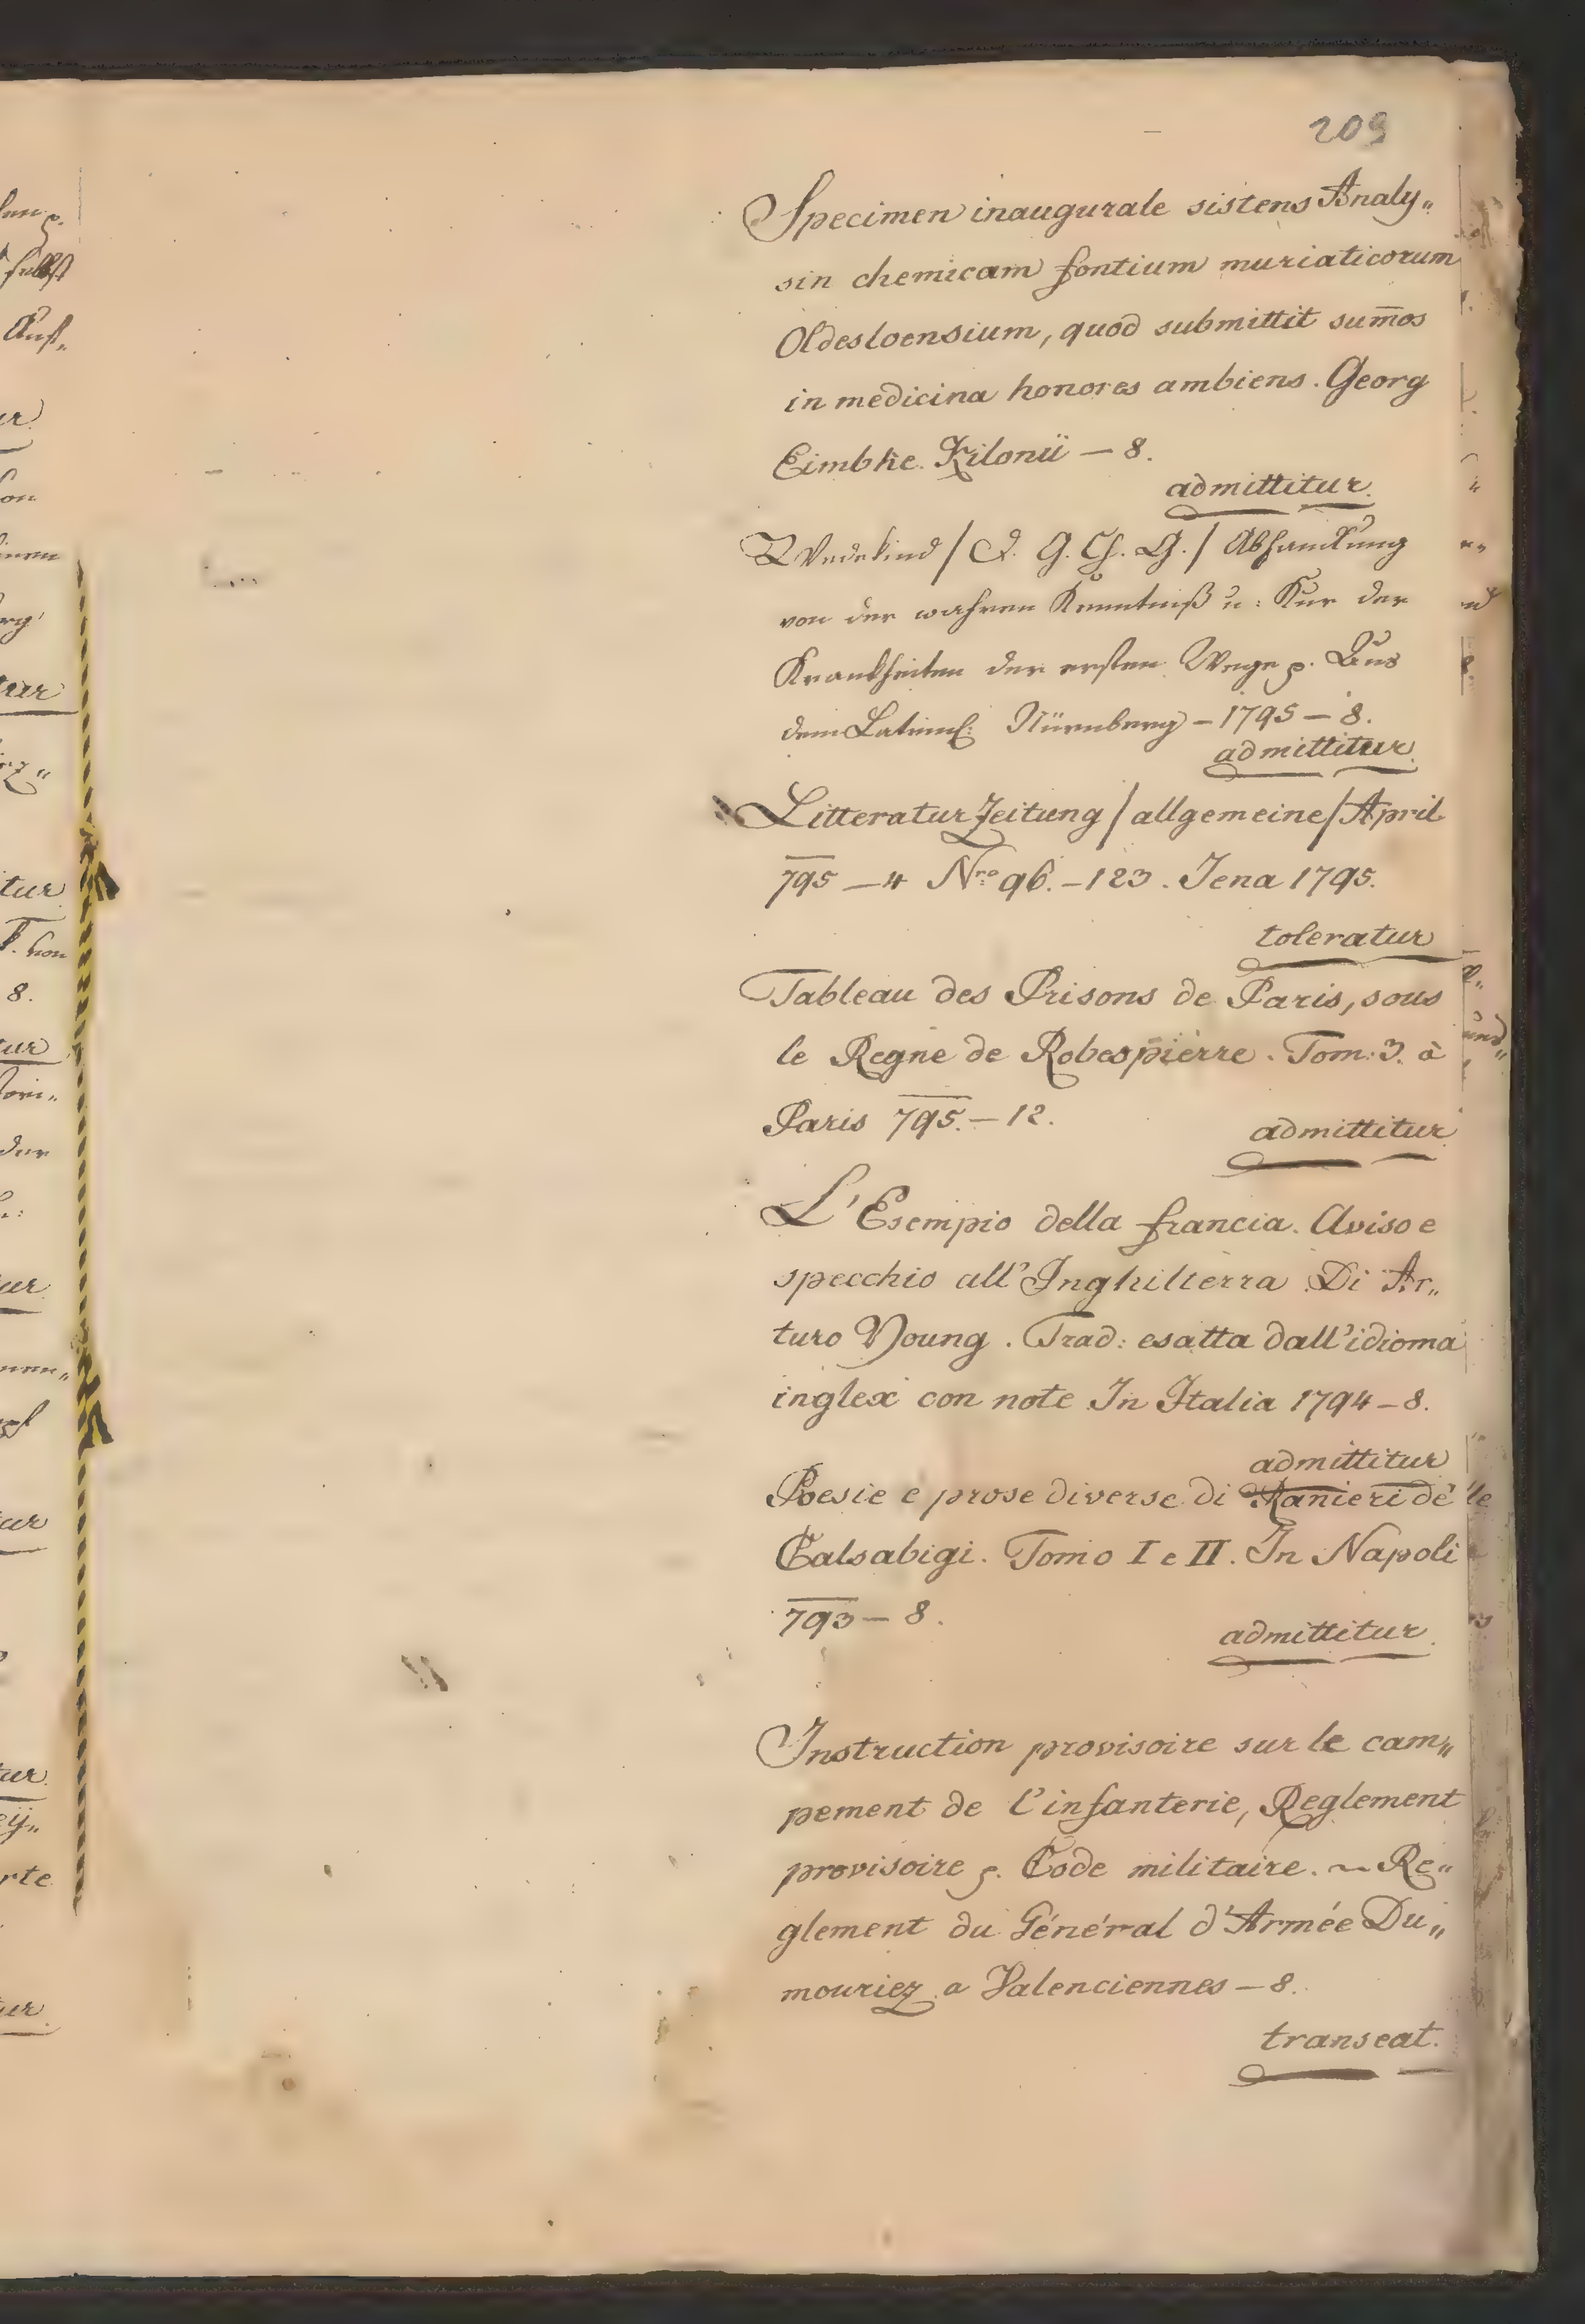 209
Specimen inaugurale sistens Analy„
sin chemicam fontium muriaticorum
Oldesloensium, quod submittit sum̅os
in medicina honores ambiens. Georg
Eimbke. Kilonii — 8.
admittitur.
Wedekind / d. G. Ch. G. / Abhandlung
von der wahren Kenntniß u: Kur der
Krankheiten der ersten Wege p. Aus
dem Latein: Nürnberg – 1795 – 8.
admittitur.
Litteratur Zeitung / allgemeine / April
795 — 4 Nro 96. – 123. Jena 1795.
toleratur
Tableau des Prisons de Paris, sous
le Regne de Robespierre. Tom: 3. à
Paris 795. – 12.
admittitur
L'Esempio della francia. Aviso e
specchio all'Inghilterra Di Ar„
turo Young. Trad: esatta dall'idioma
inglex con note In Italia 1794 – 8.
admittitur
Poesie e prose diverse di Ranieri dè
Calsabigi. Tomo I e II. In Napoli
793 — 8.
admittitur.
Instruction provisoire sur le cam„
pement de l'infanterie, Reglement
provisoire p. Code militaire. ~ Re„
glement du Général d'Armée Du„
mouriez a Valenciennes – 8.
transeat.